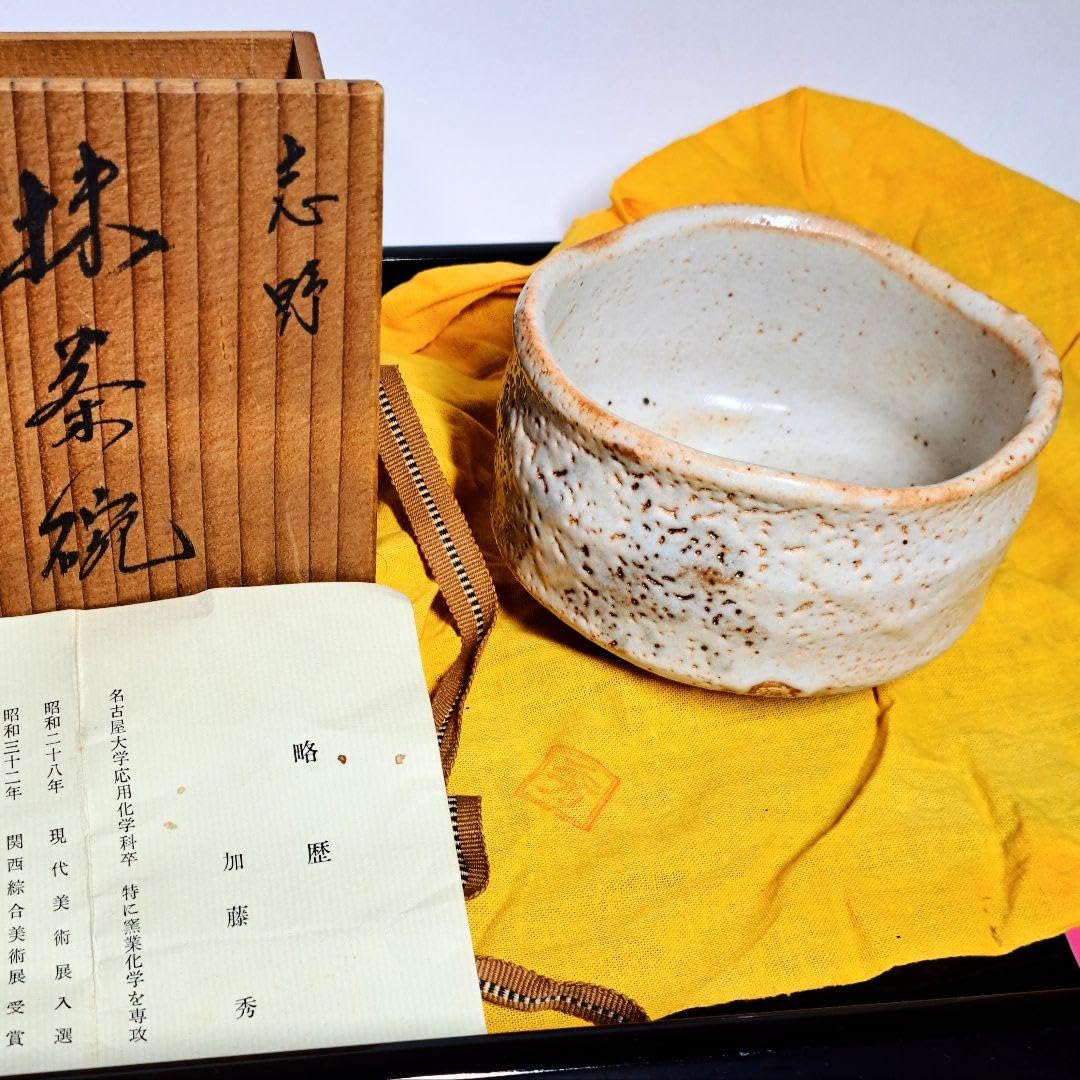 志野
抹茶碗
略歴
加藤秀
名古屋大学応用化学科卒 特に窯業化学を専攻
昭和二十八年 現代美術展入選
昭和三十二年 関西綜合美術展受賞
秀